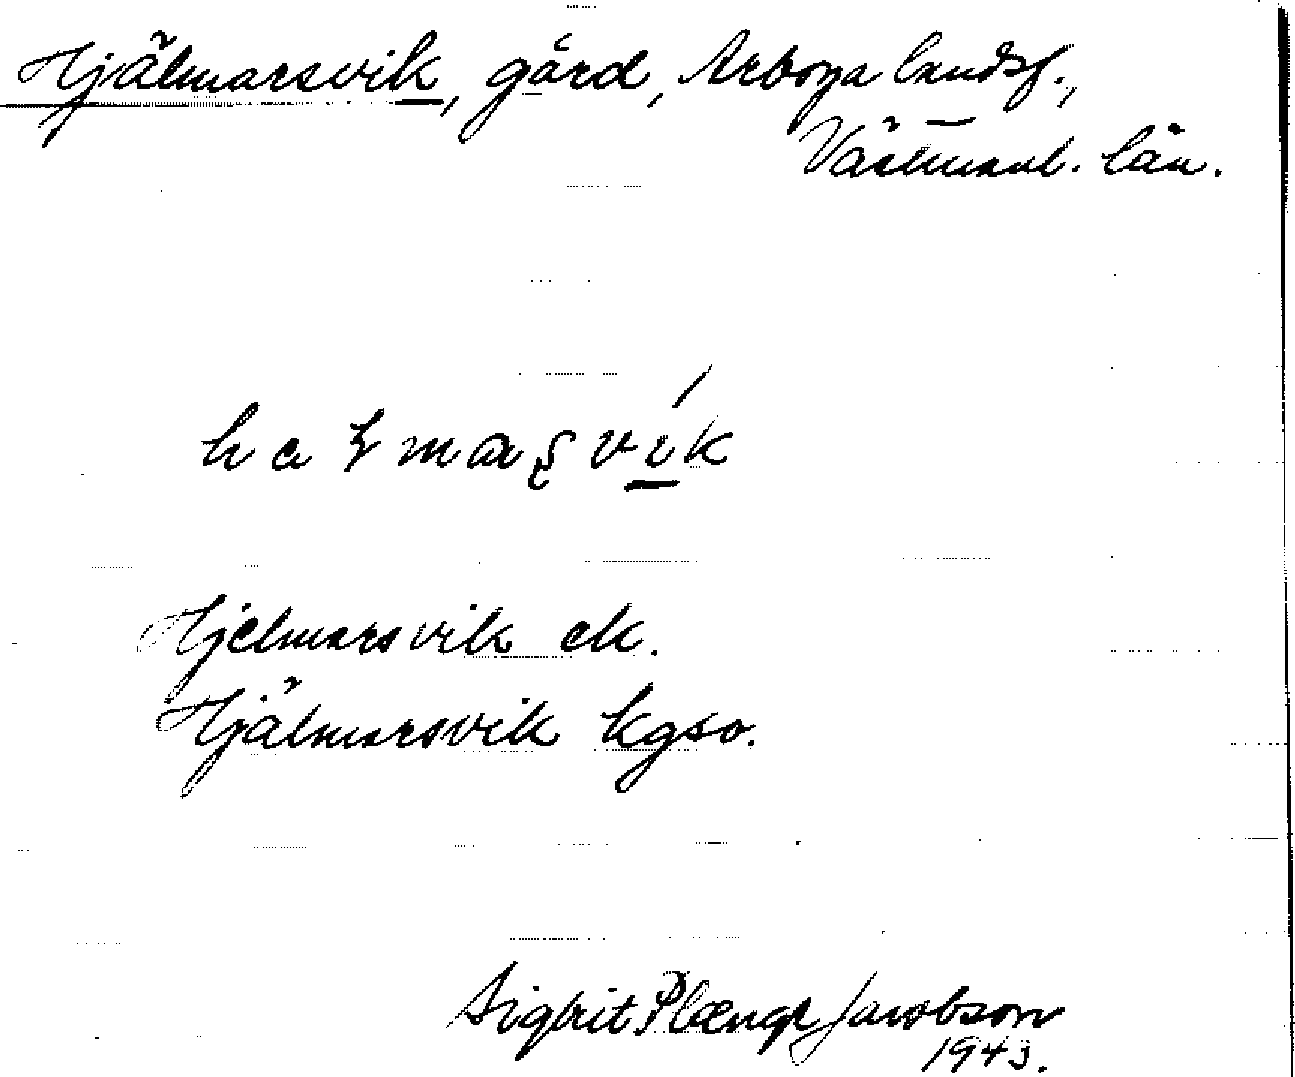 Hjälmarsvik, gård, Arboga landsf.,
Västmanl. län.
Hjelmarsvik ek.
Hjälmarsvik kgso.
Sigfrit Plængr Jacobson
1943.